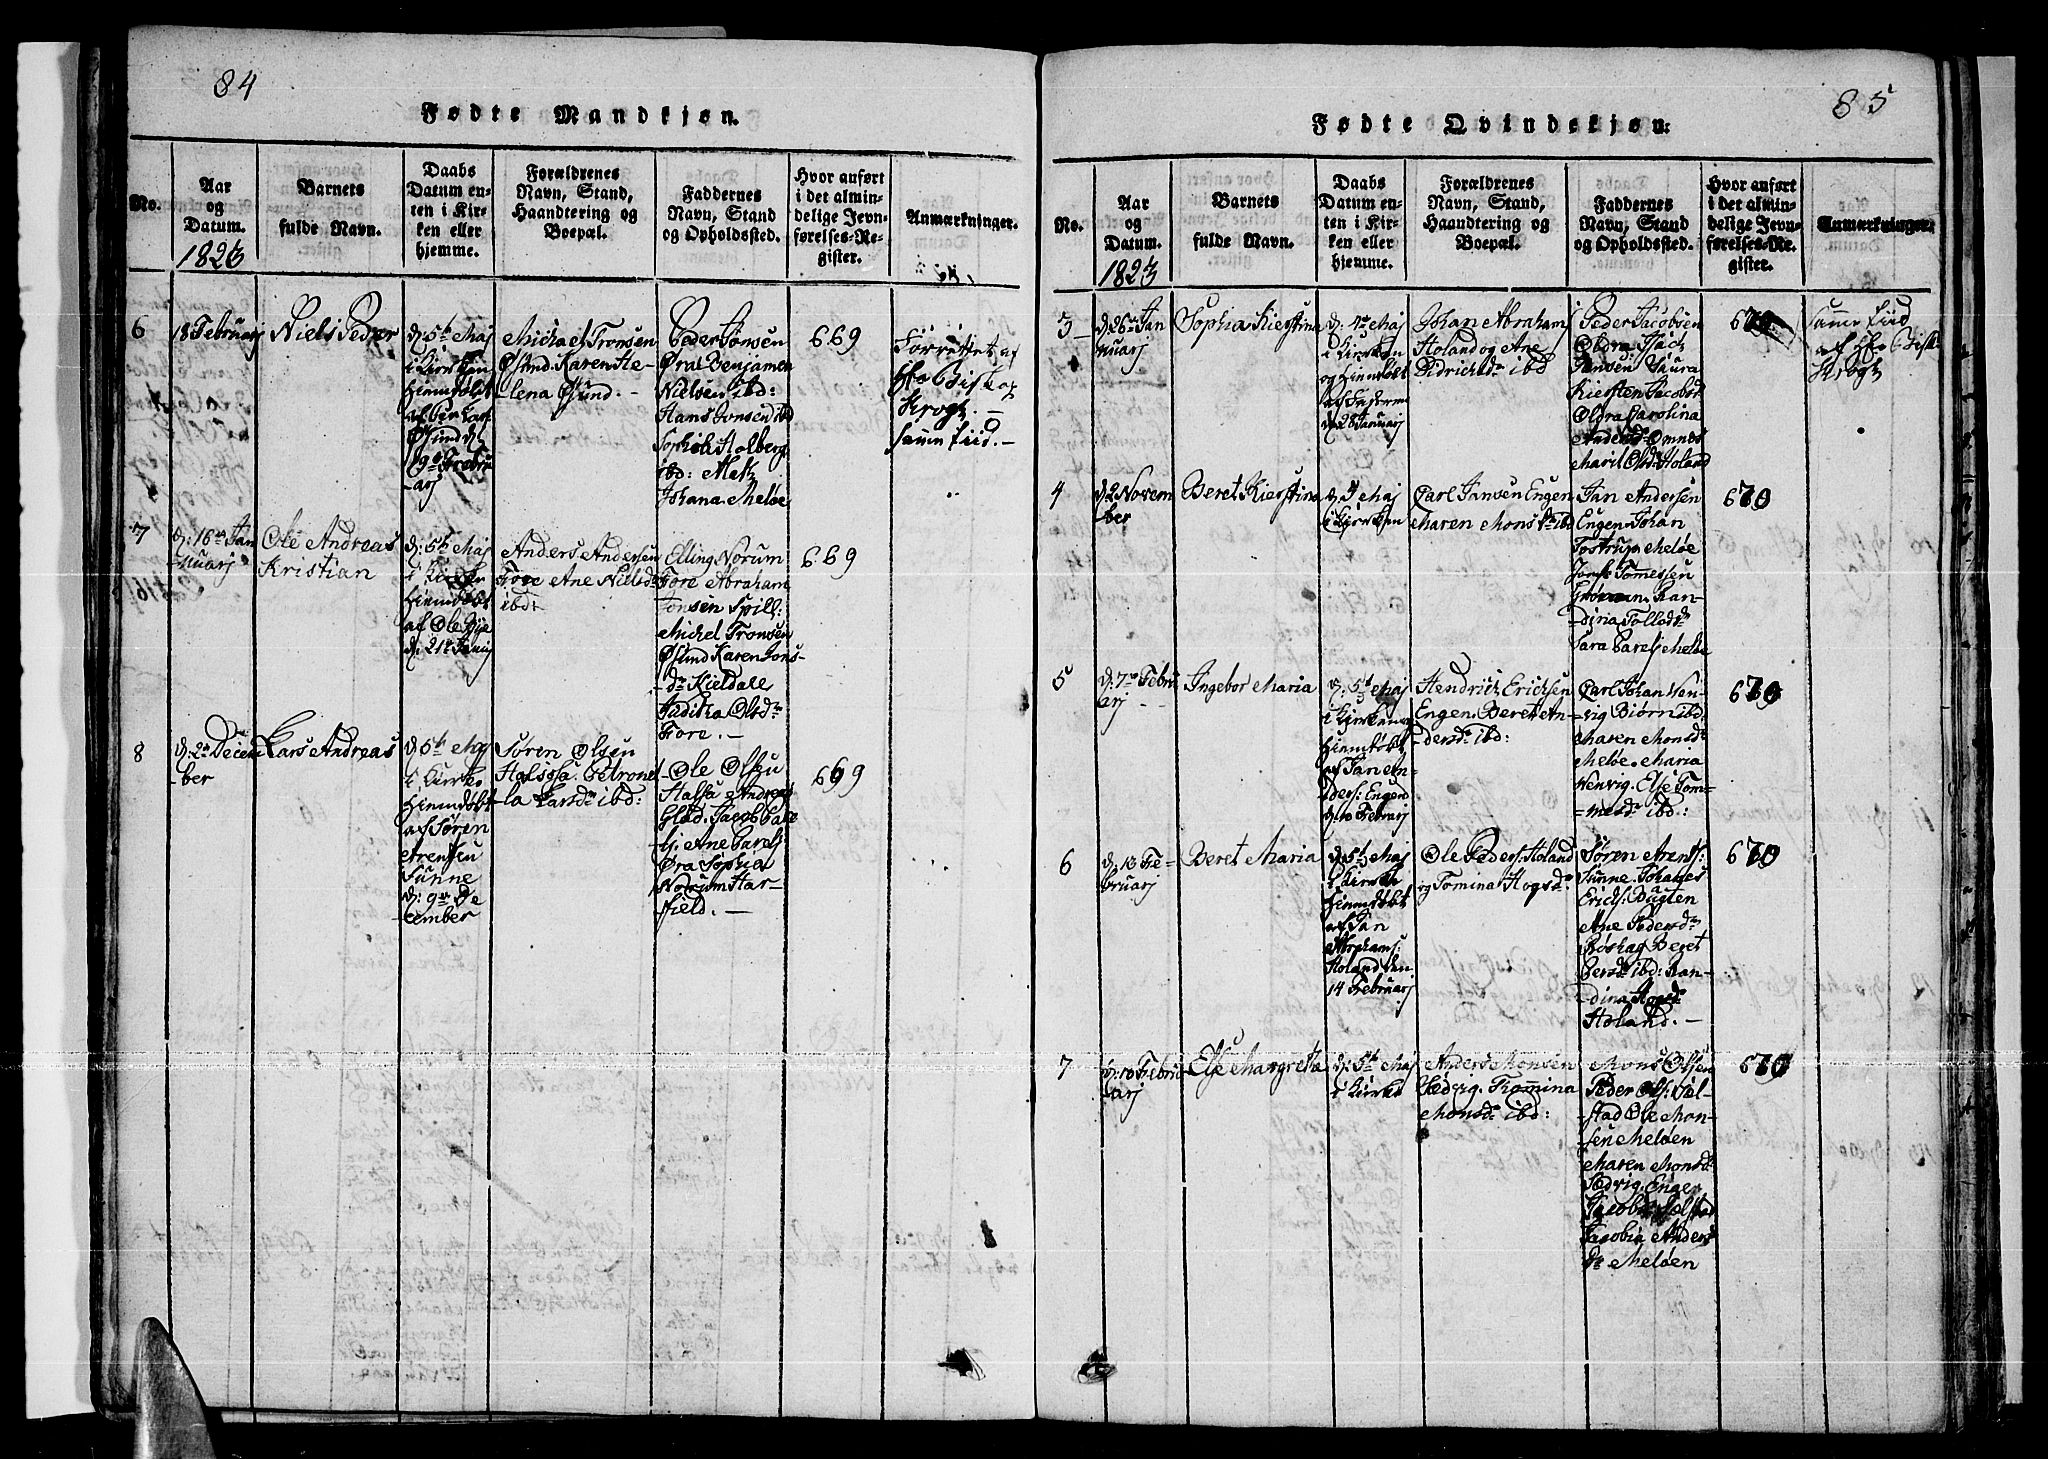 84
Fødte Mandkjøn.
No.
Aar
og
Datum.
1823
Barnets
fulde Navn.
Daabs
Datum en-
ten i Kir-
ken eller
hjemme.
Forældrenes
Navn, Stand,
Haandtering og
Boepæl.
Faddernes
Navn, Stand
og Opholdssted.
Hvor anført
i det almin-
delige Jevn-
førelses-Re-
gister.
Anmærkninger.
6
18 Februarj
Niels Peder
d: 5te Maj
i Kirken
Hiemdøbt
9de Febru
arj
Michael Tronsen
Øsund Karen He-
lena Øsund. -
Peder Jonsen
Øra Benjamen
Nielsen ibd:
Hans Jonsen ibd
Sophia Holberg
ibd: Mette
Johana Meløe
669
Forrettet af
Hr Biskop
Krogh. -
7
d: 16de Jan
nuarj
Ole Andreas
Kristian
d: 5te Maj
i Kirken
Hiemdøbt
af Ole Bye
d: 21de Januj
Anders Andersen
Fore Ane Nielsdr
ibd:
Elling Norum
Fore Abraham
Jonsen Spill:
Michel Tronsen
Øsund Karen Jons-
dr Kieldale
Juditha Olsdr
Fore. -
669
8
d: 2de Decem
ber
Lars Andreas
d: 5te Maj
i Kirke.
Hiemdøbt
af Søren
Arentsen
Sunne
d: 9de De
cember
Søren Olsen
Halsosa. Petronel
la Larsdr ibd:
Ole Olsen
Halsa Andreas
Glad. Jacob Gare
lj. Ane Carelj
Øra Sophia
Norum Har-
field. -
669
85
Fødte Qvindekjøn:
No.
Aar
og
Datum.
1823
Barnets
fulde Navn.
Daabs
Datum en-
ten i Kir-
ken eller
hjemme.
Forældrenes
Navn, Stand,
Haandtering og
Boepæl.
Faddernes
Navn, Stand
og Opholdssted.
Hvor anført
i det almin-
delige Jevn-
førelses-Re-
gister.
Anmærkninger.
3
d: 26de Jan
nuarj
Sophia Kierstina
d: 4de Maj
i Kirken
og Hiemdøbt
d 28 Januarj
Johan Abraham
Holand og Ane
Didrichsdr ibd
Peder Jacobsen
Kiersten Jacobsdr
Oldra Carolina
Marit Olsdr Holand
670
af Hr Bisk
Krogh
4
d 2 Novem
ber
Beret Kierstina
d: 5 Maj
i Kirken
Carl Jansen Engen
Maren Monsdr ibd
Jan Andersen
Engen Johan
Tostrup Meløe
Tomessen
Ran-
dina Tollesdr
Sara Carelj Meløe
670
5
d: 7de Febru
arj
Ingebor Maria
d: 5te Maj
i Kirken
Hiemdøbt
af Jan An-
ders: Engen
d. 10 Februarj
Hendrich Erichsen
Engen. Beret An-
dersdr ibd:
Carl Johan Wen-
vig Biørn ibd.
Maren Monsdr
Meløe. Maria
Wenvig. Else Tom-
mesdr ibd:
670
6
d: 13 Fe-
bruarj
Beret Maria
d: 5te Maj
i Kirke
Hiemdøbt
af Jan
Abrahams:
Holand den
14 Februarj
Ole Peders: Holand
og Tomina Hogsdr
Søren Arents:
Sunne. Johanes
Erichs: Bugten
Ane Pedersdr
Røshag Beret
Persdr ibd: Ran-
dina Hogsdr
Holand. -
670
7
d: 10 Febru
arj
Else Margreta
d: 5te Maj
i Kirke
Anders Monsen
Sædvig. Tromina
Monsdr ibd:
Mons Olsen
Peder Ols: Sæl-
stad Ole Mon-
sen Meløen
Maren Monsdr
Sædvig. Enger
Jacobsdr Sælstad
Jacobia Anders
dr Meløen
670